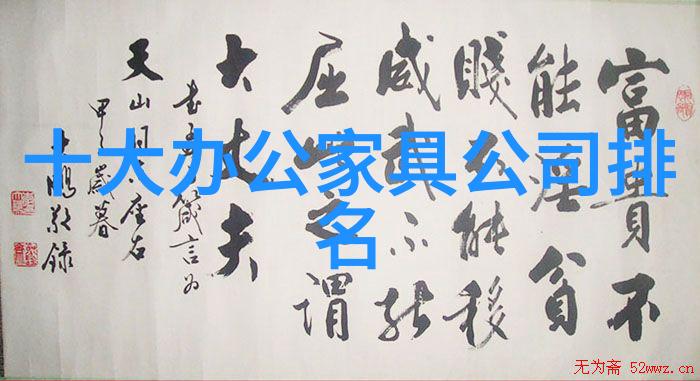 十大办公家具公司排
名
富貴不
能淫貧
賤不能移
威武不能
屈此之謂
大丈夫
箴言为
天山同志座右
歲暮
敬録
无为斋 52wwz.cn